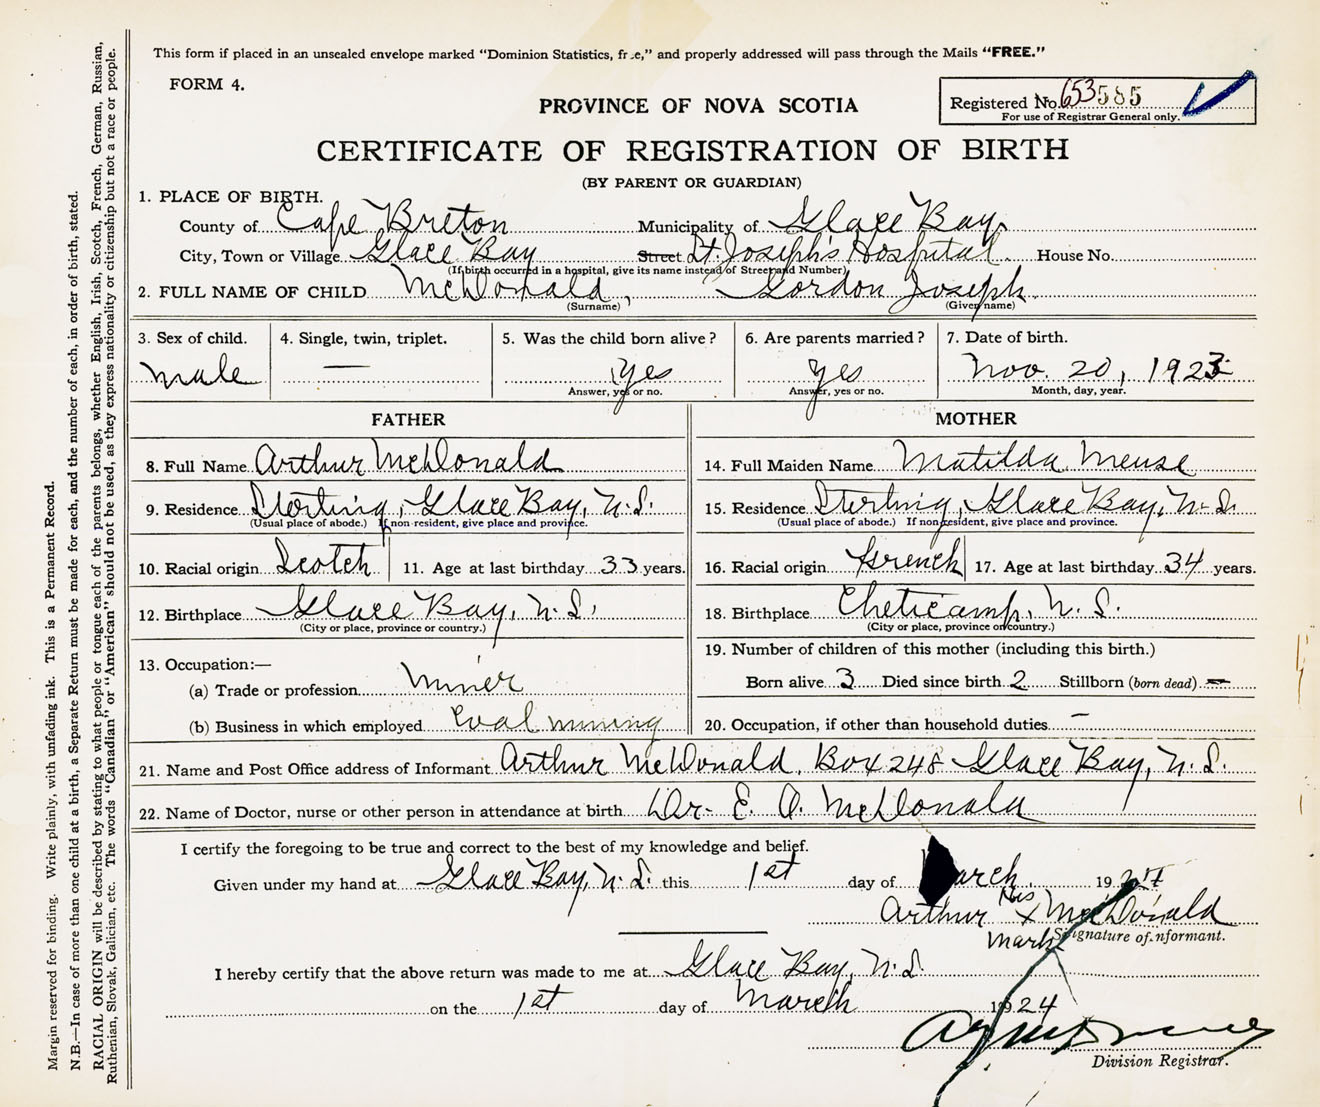 This form if placed in an unsealed envelope marked "Dominion Statistics, free," and properly addressed will pass through the Mails "FREE."
FORM 4.
PROVINCE OF NOVA SCOTIA
Registered No. 653585
For use of Registrar General only.
CERTIFICATE OF REGISTRATION OF BIRTH
(BY PARENT OR GUARDIAN)
1. PLACE OF BIRTH.
County of Cape Breton Municipality of Glace Bay.
City, Town or Village Glace Bay Street St. Joseph's Hospital House No.
(If birth occurred in a hospital, give its name instead of Street and Number)
2. FULL NAME OF CHILD McDonald, Gordon Joseph
(Surname) (Given name)
3. Sex of child. 4. Single, twin, triplet. 5. Was the child born alive? 6. Are parents married? 7. Date of birth.
male — Yes Yes Nov. 20, 1923
Answer, yes or no. Answer, yes or no. Month, day, year.
FATHER
8. Full Name Arthur McDonald
9. Residence Sterling, Glace Bay, N.S.
(Usual place of abode.) If non-resident, give place and province.
10. Racial origin Scotch 11. Age at last birthday 33 years.
12. Birthplace Glace Bay, N.S.
(City or place, province or country.)
13. Occupation:—
(a) Trade or profession miner
(b) Business in which employed Coal mining
MOTHER
14. Full Maiden Name Matilda Meuse
15. Residence Sterling, Glace Bay, N.S.
(Usual place of abode.) If non-resident, give place and province.
16. Racial origin French 17. Age at last birthday 34 years.
18. Birthplace Cheticamp, N.S.
(City or place, province or country.)
19. Number of children of this mother (including this birth.)
Born alive 3 Died since birth 2 Stillborn (born dead) —
20. Occupation, if other than household duties —
21. Name and Post Office address of Informant Arthur McDonald, Box 248 Glace Bay, N.S.
22. Name of Doctor, nurse or other person in attendance at birth Dr. E. A. McDonald
I certify the foregoing to be true and correct to the best of my knowledge and belief.
Given under my hand at Glace Bay, N.S. this 1st day of March 1924
Arthur his x McDonald
mark Signature of Informant.
I hereby certify that the above return was made to me at Glace Bay, N.S.
on the 1st day of March 1924
Division Registrar.
Margin reserved for binding. Write plainly, with unfading ink. This is a Permanent Record.
N.B.—In case of more than one child at a birth, a Separate Return must be made for each, and the number of each, in order of birth, stated.
RACIAL ORIGIN will be described by stating to what people or tongue each of the parents belongs, whether English, Irish, Scotch, French, German, Russian,
Ruthenian, Slovak, Galician, etc. The words "Canadian" or "American" should not be used, as they express nationality or citizenship but not a race or people.